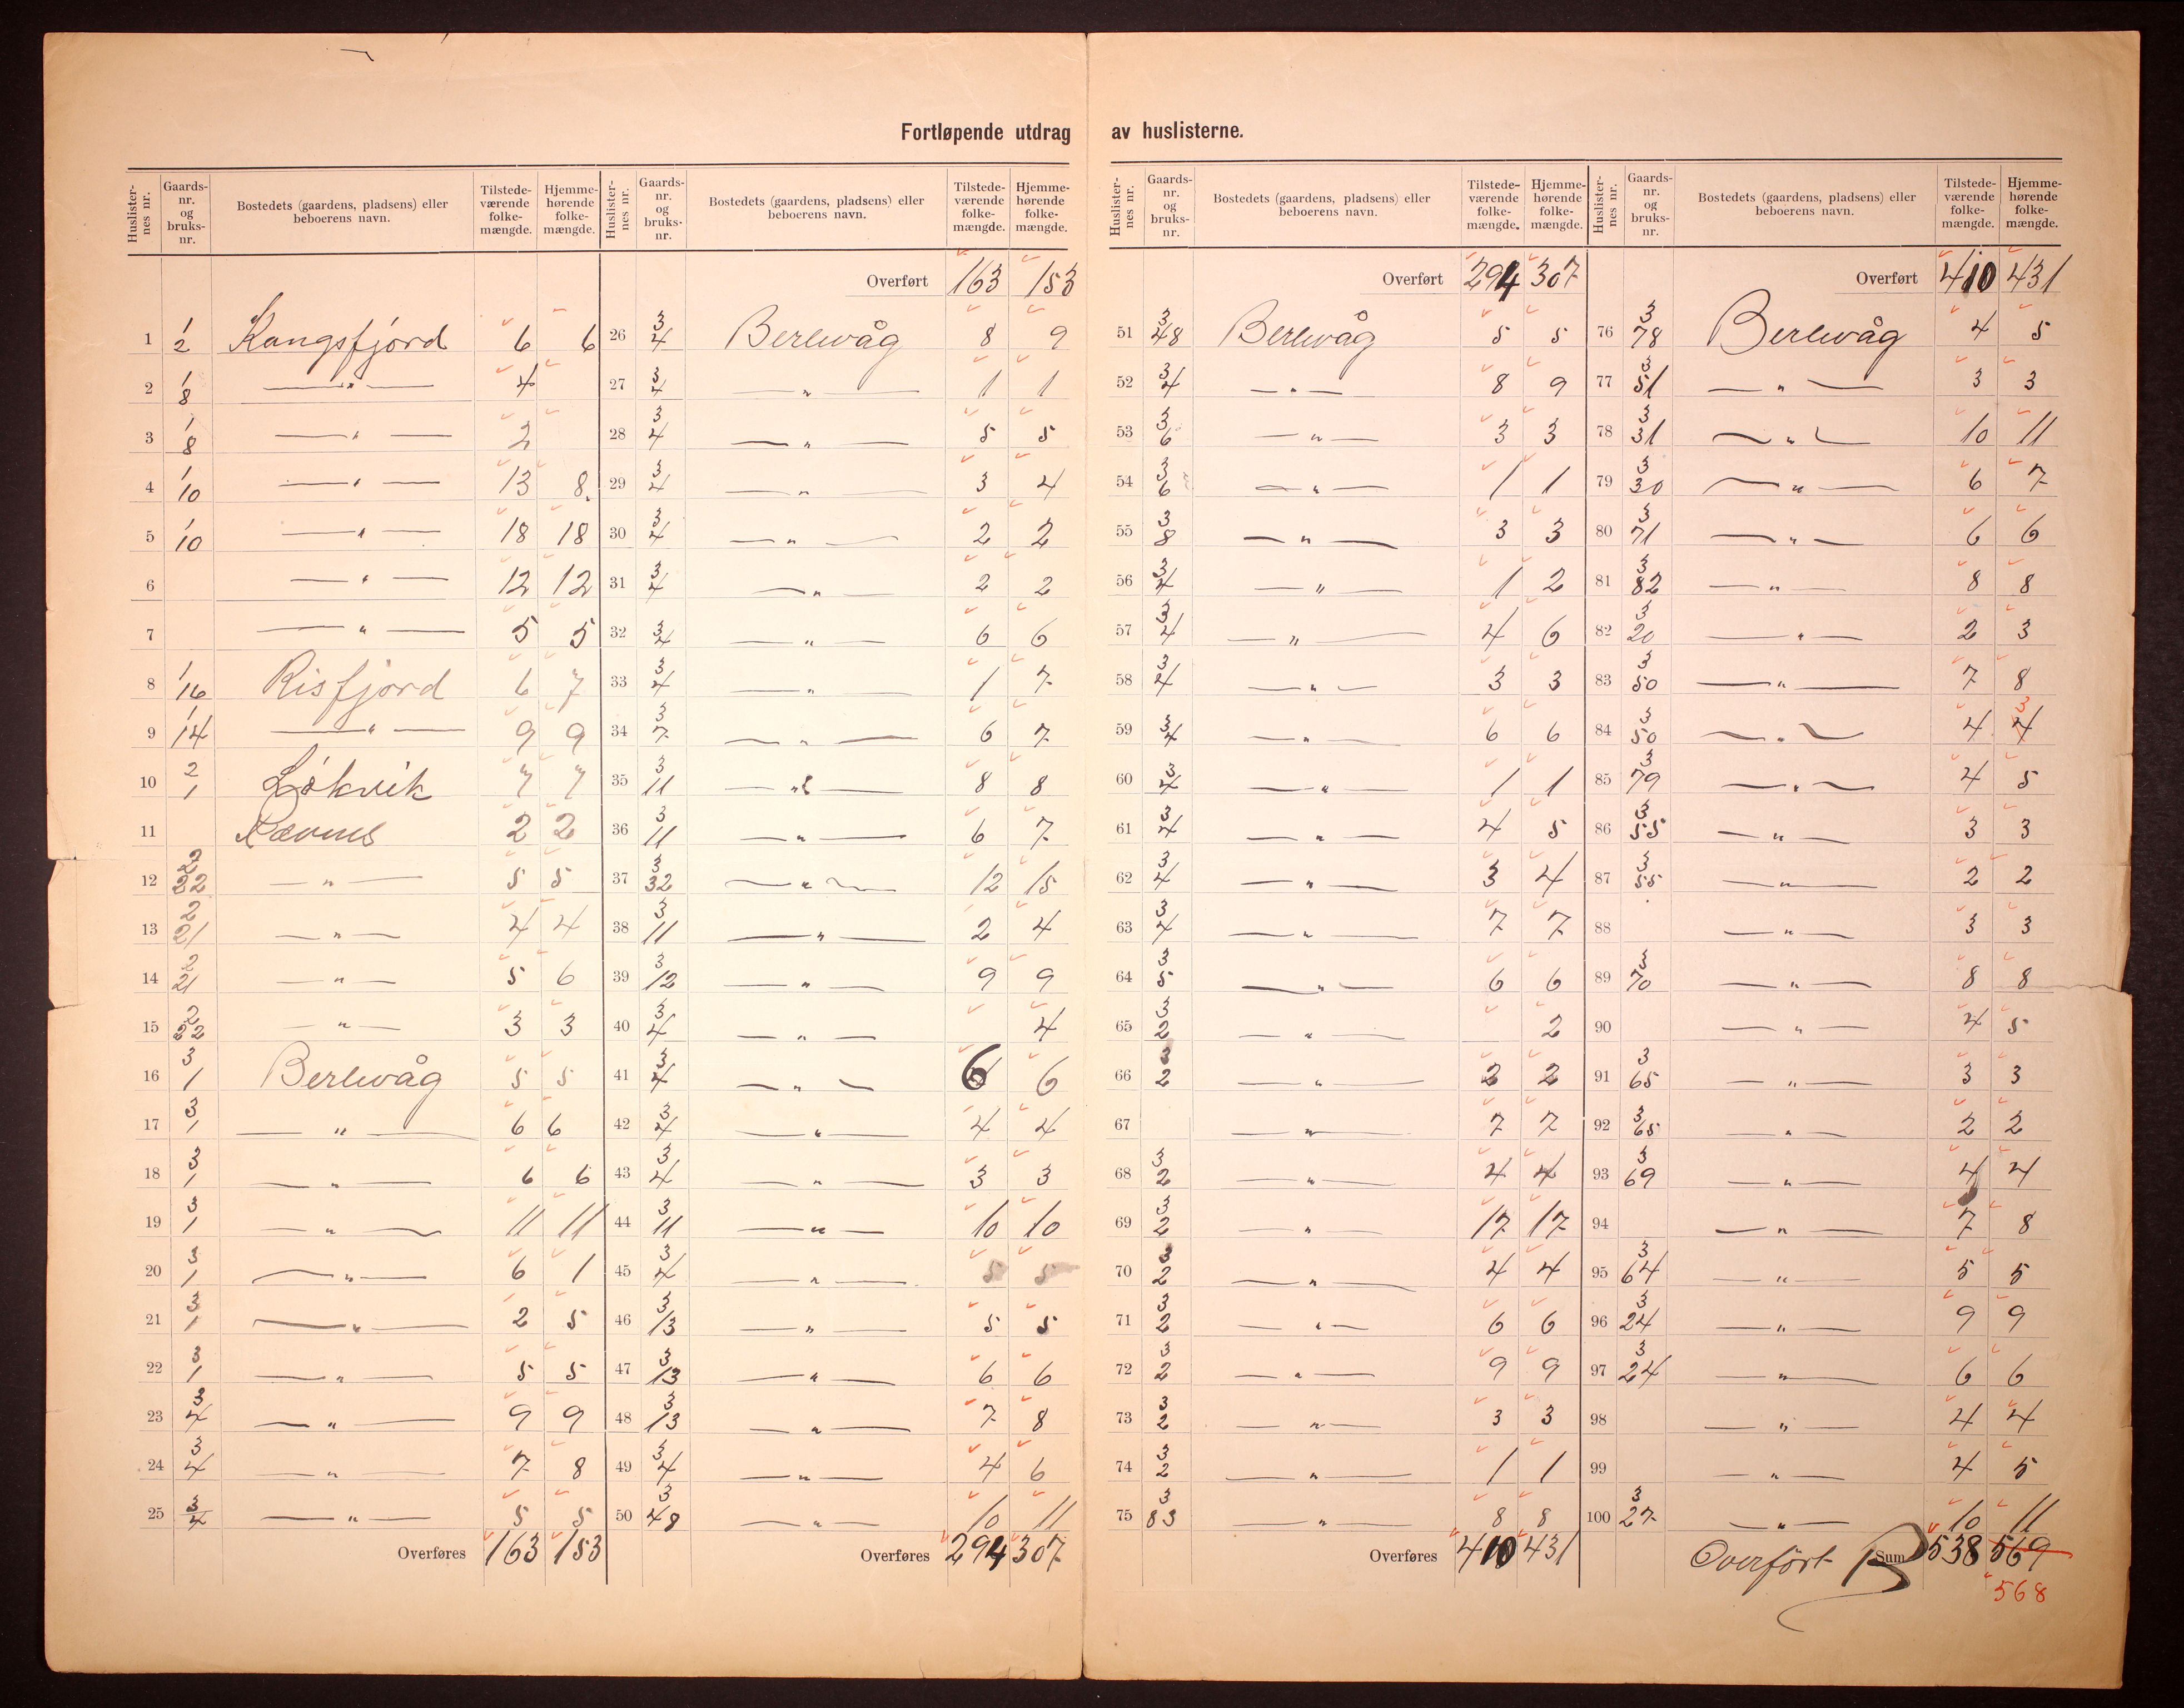 Fortløpende utdrag av huslisterne.
Huslisternes nr. Gaards-nr. og bruks-nr. Bostedets (gaardens, pladsens) eller beboerens navn. Tilstedeværende folkemængde. Hjemmehørende folkemængde.
1 1/2 Kangsfjord 6 6
2 1/8 — " — 4
3 1/8 — " — 2
4 1/10 — " — 13 8
5 1/10 — " — 18 18
6 — " — 12 12
7 — " — 5 5
8 1/16 Risfjord 6 7
9 1/14 — " — 9 9
10 2/1 Løkvik 7 7
11 2 2
12 — " — 5 5
13 — " — 4 4
14 — " — 5 6
15 — " — 3 3
16 3/1 Berlevåg 5 5
17 3/1 — " — 6 6
18 3/1 — " — 6 6
19 3/1 — " — 11 11
20 3/1 — " — 6 1
21 3/1 — " — 2 5
22 3/1 — " — 5 5
23 3/4 — " — 9 9
24 3/4 — " — 7 8
25 3/4 — " — 5 5
Overføres 163 153
Huslisternes nr. Gaards-nr. og bruks-nr. Bostedets (gaardens, pladsens) eller beboerens navn. Tilstedeværende folkemængde. Hjemmehørende folkemængde.
Overført 163 153
26 3/4 Berlevåg 8 9
27 3/4 — " — 1 1
28 3/4 — " — 5 5
29 3/4 — " — 3 4
30 3/4 — " — 2 2
31 3/4 — " — 2 2
32 3/4 — " — 6 6
33 3/4 — " — 1 7
34 3/7 — " — 6 7
35 3/11 — " — 8 8
36 3/11 — " — 6 7
37 3/32 — " — 12 15
38 3/11 — " — 2 4
39 3/12 — " — 9 9
40 3/4 — " — 4
41 3/4 — " — 6 6
42 3/4 — " — 4 4
43 3/4 — " — 3 3
44 3/11 — " — 10 10
45 3/4 — " — 5 5
46 3/13 — " — 5 5
47 3/13 — " — 6 6
48 3/13 — " — 7 8
49 3/4 — " — 4 6
50 3/48 — " — 10 11
Overføres 294 307
Huslisternes nr. Gaards-nr. og bruks-nr. Bostedets (gaardens, pladsens) eller beboerens navn. Tilstedeværende folkemængde. Hjemmehørende folkemængde.
Overført 294 307
51 3/48 Berlevåg 5 5
52 3/4 — " — 8 9
53 3/6 — " — 3 3
54 3/6 — " — 1 1
55 3/8 — " — 3 3
56 3/4 — " — 1 2
57 3/4 — " — 4 6
58 3/4 — " — 3 3
59 3/4 — " — 6 6
60 3/4 — " — 1 1
61 3/4 — " — 4 5
62 3/4 — " — 3 4
63 3/4 — " — 7 7
64 3/5 — " — 6 6
65 3/2 — " — 2
66 3/2 — " — 2 2
67 — " — 7 7
68 3/2 — " — 4 4
69 3/2 — " — 17 17
70 3/2 — " — 4 4
71 3/2 — " — 6 6
72 3/2 — " — 9 9
73 3/2 — " — 3 3
74 3/2 — " — 1 1
75 3/83 — " — 8 8
Overføres 410 431
Huslisternes nr. Gaards-nr. og bruks-nr. Bostedets (gaardens, pladsens) eller beboerens navn. Tilstedeværende folkemængde. Hjemmehørende folkemængde.
Overført 410 431
76 3/78 Berlevåg 4 5
77 3/51 — " — 3 3
78 3/31 — " — 10 11
79 3/30 — " — 6 7
80 3/71 — " — 6 6
81 3/82 — " — 8 8
82 3/20 — " — 2 3
83 3/50 — " — 7 8
84 3/50 — " — 4 4 3
85 3/79 — " — 4 5
86 3/55 — " — 3 3
87 3/55 — " — 2 2
88 — " — 3 3
89 3/70 — " — 8 8
90 — " — 4 5
91 3/65 — " — 3 3
92 3/65 — " — 2 2
93 3/69 — " — 4 4
94 — " — 7 8
95 3/64 — " — 5 5
96 3/24 — " — 9 9
97 3/24 — " — 6 6
98 — " — 4 4
99 — " — 4 5
100 3/27 — " — 10 11
Overført Sum 538 569
568